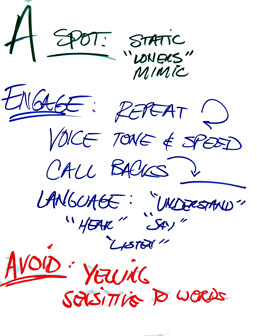 A SPOT: STATIC
"LONERS"
MIMIC
ENGAGE: REPEAT
VOICE TONE & SPEED
CALL BACKS
LANGUAGE: "UNDERSTAND"
"HEAR" "SAY"
"LISTEN"
AVOID: YELLING
SENSITIVE TO WORDS